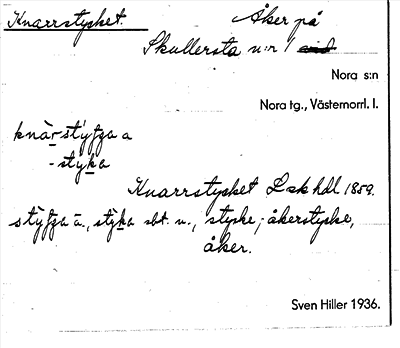 Knarrstycket. Åker på
Skullersta n:r 1
Nora s:n
Nora tg., Västernorrl. l.
knàr-
-styka
Knarrstycket L sk hdl 1859.
styka sbt. n., stycke; åkerstycke,
åker.
Sven Hiller 1936.